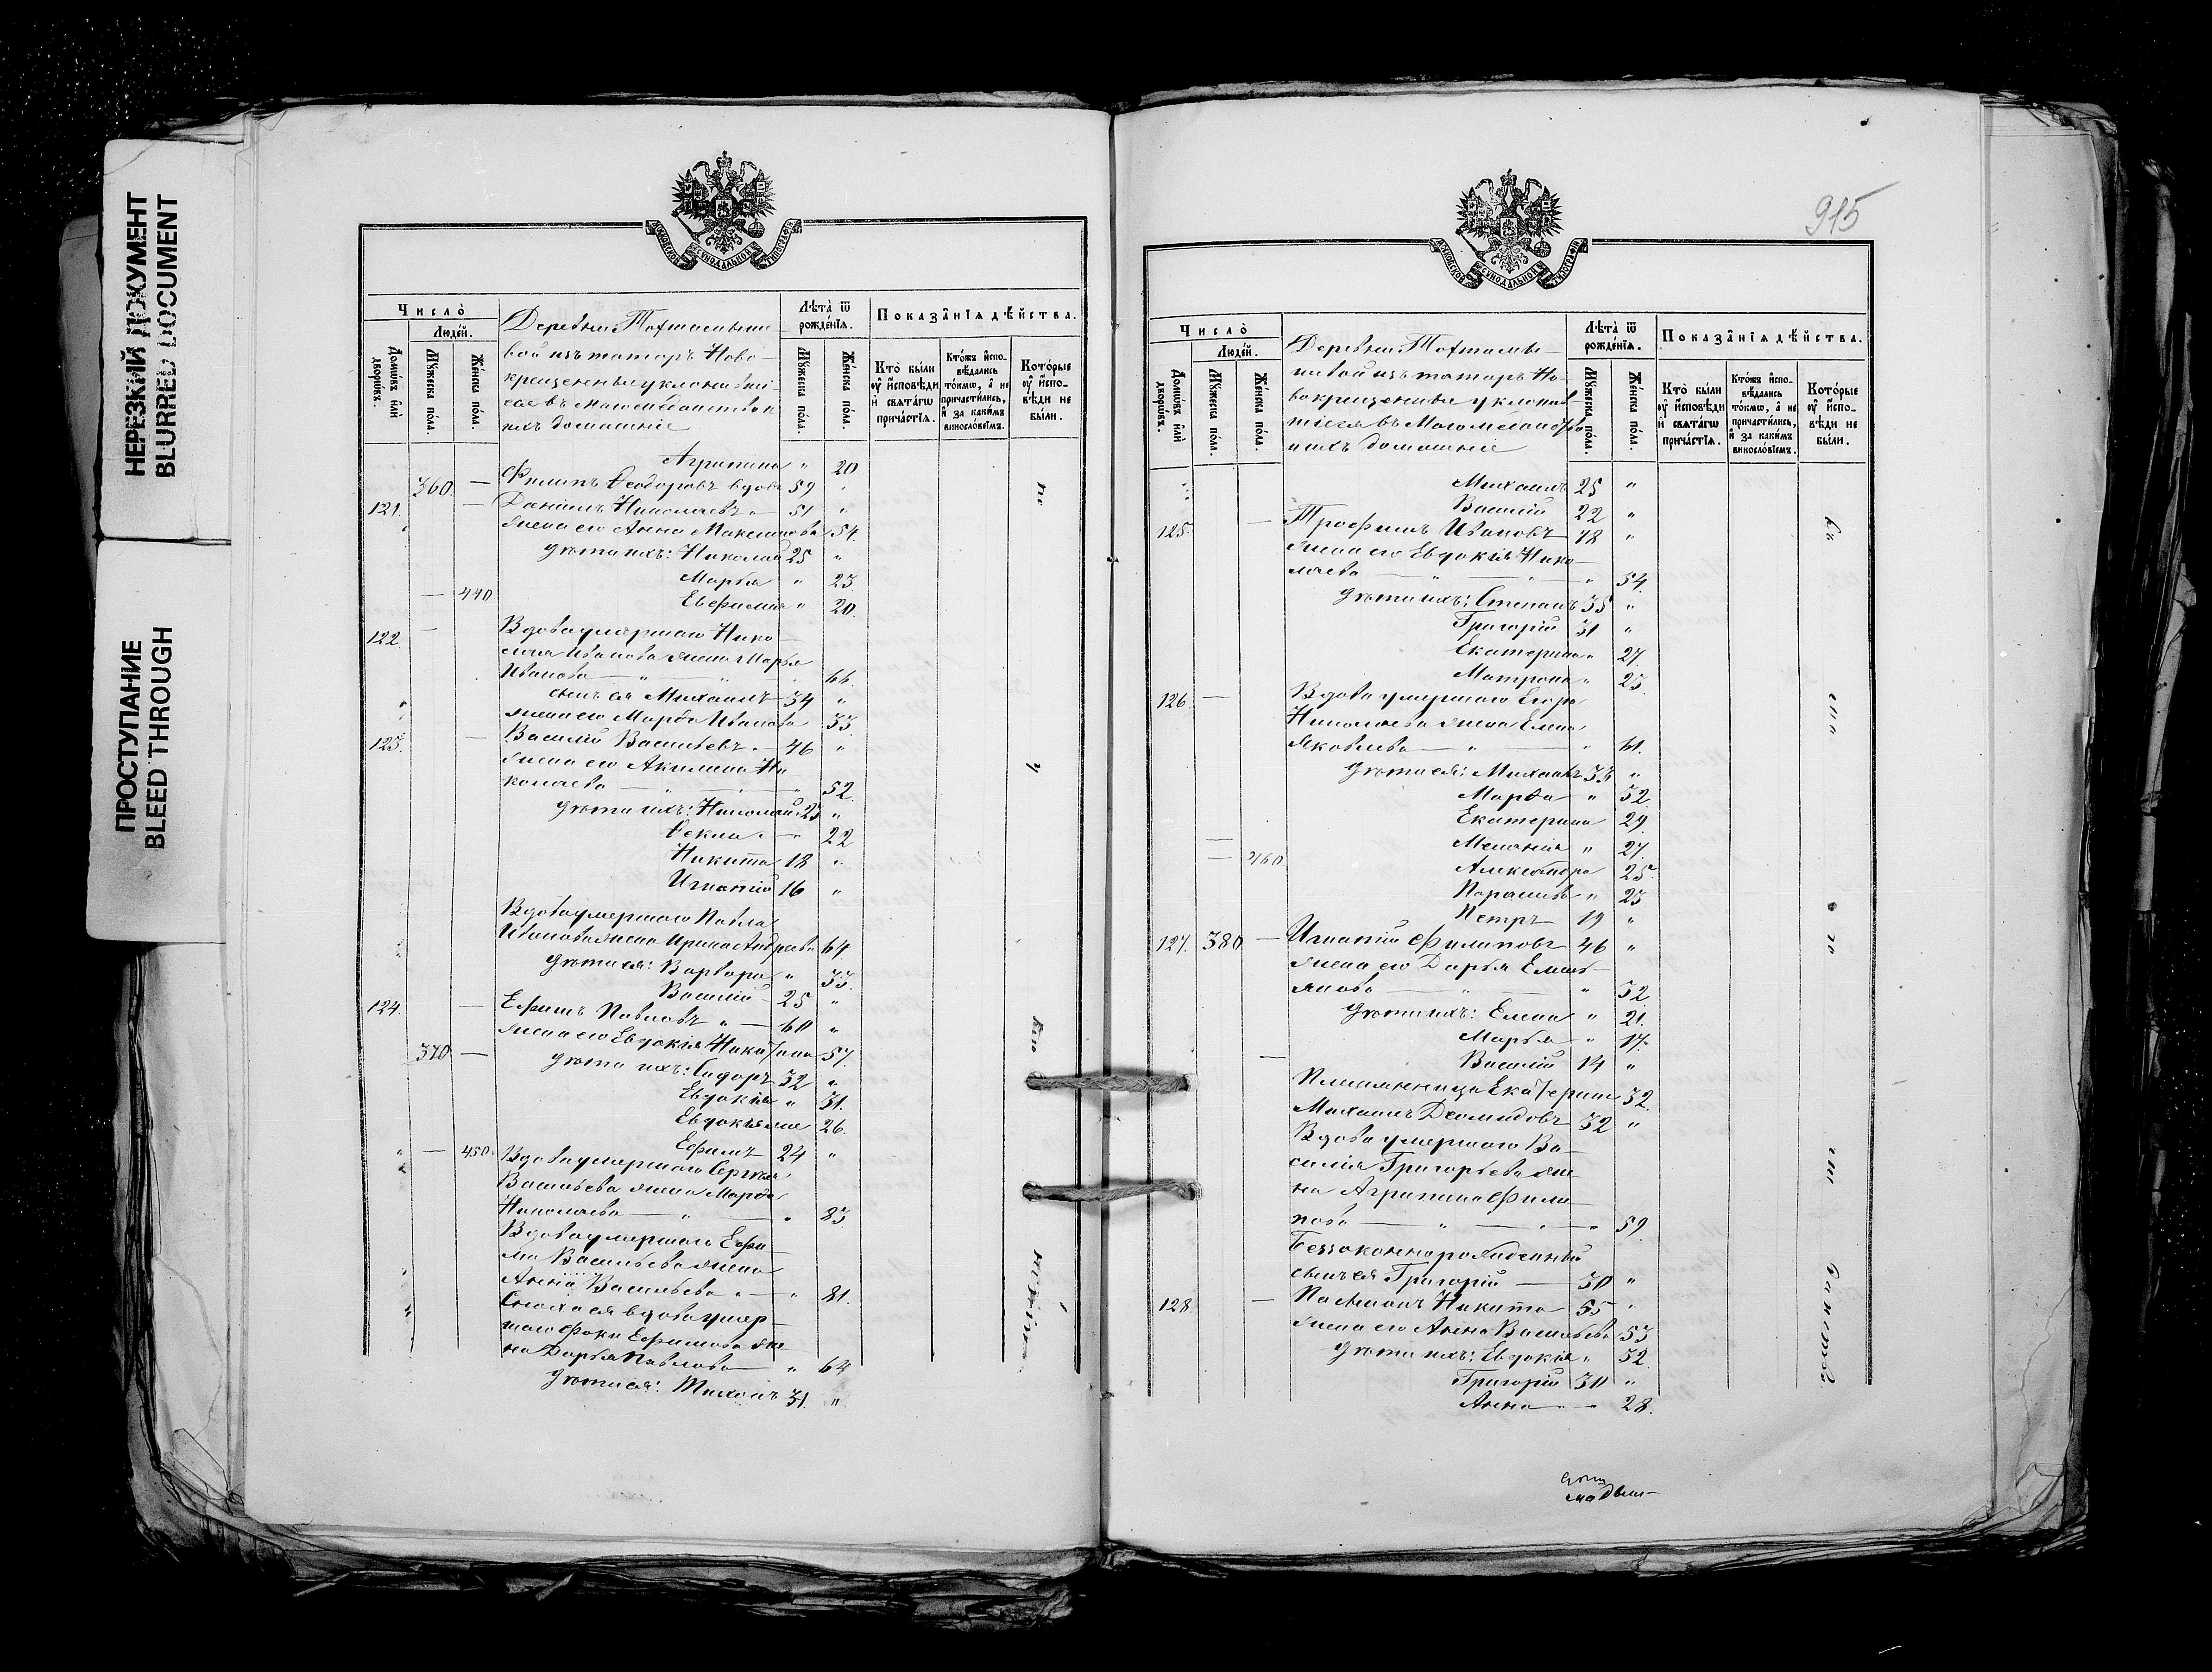 НЕРЕЗКИЙ ДОКУМЕНТ
BLURRED DOCUMENT
ПРОСТУПАНИЕ
BLEED THROUGH
МОСКОВСКОЙ СѴНОДАЛЬНОЙ ТИПОГРАФІИ
Число̀
Люде́й.
Домѡ́въ и҆лѝ дворѡ́въ.
Мꙋ́жеска по́ла.
Же́нска по́ла.
Деревни
вой изъ татаръ Ново-
крещенные уклонивші
еся въ магометанство и
ихъ домашніе
Лѣ́та ѿ рожде́нїѧ.
Мꙋ́жеска по́ла.
Же́нска по́ла.
Показа̂нїѧ дѣ́йства.
Кто̀ бы́ли оу҆ и҆́сповѣди и҆ свѧта́гѡ прича́стїѧ.
Кто́жъ и҆спо-вѣ́дались то́кмѡ, а҆ не причасти́лись, и҆ за каки́мъ винослов́їемъ.
Кото́рые оу҆ и҆́спо-вѣди не бы́ли.
Агрипина " 20
360. — Филипъ Ѳеодоровъ вдовъ 59 "
121. — Даніилъ Николаевъ " 51 "
жена его Анна Максимова 54.
дѣти ихъ: Николай 25 "
Марья " 23
— 440 Евфимія " 20.
122. — Вдова умершаго Нико-
лая Иванова жена Марья
Иванова — " " 66.
сынъ ея Михаилъ 34 "
жена его Марѳа Иванова 33
123. — Василій Васильевъ — 46 "
жена его Акилина Ни
колаева — " 52.
дѣти ихъ: Николай 25 "
Ѳекла — " 22
Никита 18 "
Игнатій 16 "
Вдова умершаго Павла
Иванова жена Ирина Андреева 64.
дѣти ея: Варвара " 33.
Василій 25 "
124. — Ефимъ Павловъ " — 60 "
жена его Евдокія Никитина 57.
370 — дѣти ихъ: Сидоръ 32 "
Евдокія " 31.
Евдокія же 26.
Ефимъ 24 "
" — 450. Вдова умершаго Сергѣя
Васильева жена Марѳа
Николаева — " — " 83.
Вдова умершаго Ефи-
ма Васильева жена
Анна Васильева " — " 81.
Сноха ея вдова умер-
шаго Фоки Ефимова же
на Дарья Павлова — " 64
дѣти ея: Тихонъ 31. "
915
МОСКОВСКОЙ СѴНОДАЛЬНОЙ ТИПОГРАФІИ
Число̀
Люде́й.
Домѡ́въ и҆лѝ дворѡ́въ.
Мꙋ́жеска по́ла.
Же́нска по́ла.
Деревни
изъ татаръ Но-
вокрещенные уклонив-
шіеся въ Магометанство
и ихъ домашніе
Лѣ́та ѿ рожде́нїѧ.
Мꙋ́жеска по́ла.
Же́нска по́ла.
Показа̂нїѧ дѣ́йства.
Кто̀ бы́ли оу҆ и҆́сповѣди и҆ свѧта́гѡ прича́стїѧ.
Кто́жъ и҆спо-вѣ́дались то́кмѡ, а҆ не причасти́лись, и҆ за каки́мъ винослов́їемъ.
Кото́рые оу҆ и҆́спо-вѣди не бы́ли.
Михаилъ 25 "
Василій 22 "
125. — Трофимъ Ивановъ 48 "
жена его Евдокія Нико-
лаева — " — " 54.
дѣти ихъ: Степанъ 35 "
Григорій 31 "
Екатерина " 27.
Матрона " 25.
126. — Вдова умершаго Егора
Николаева жена Елена
Яковлева — " — " 61.
дѣти ея: Михаилъ 33 "
Марѳа " 32.
Екатерина 29.
— Меланія " 27.
— 460 Александра 25.
Параскева " 23
Петръ 19 "
127. 380. — Игнатій Филиповъ 46 "
жена его Дарья Емель-
янова — " — " 32.
дѣти ихъ: Елена " 21.
Марья " 17.
— Василій 14 "
Племянница Екатерина 32.
Михаилъ Деомидовъ 32 "
Вдова умершаго Ва-
силія Григорьева же
на Агрипина Фили-
пова — " — " 59.
Беззаконнорожденный
сынъ ея Григорій — 30 "
128. — Никита 55 "
жена его Анна Васильева 53
дѣти ихъ: Евдокія " 32.
Григорій 30 "
Анна — " 28.